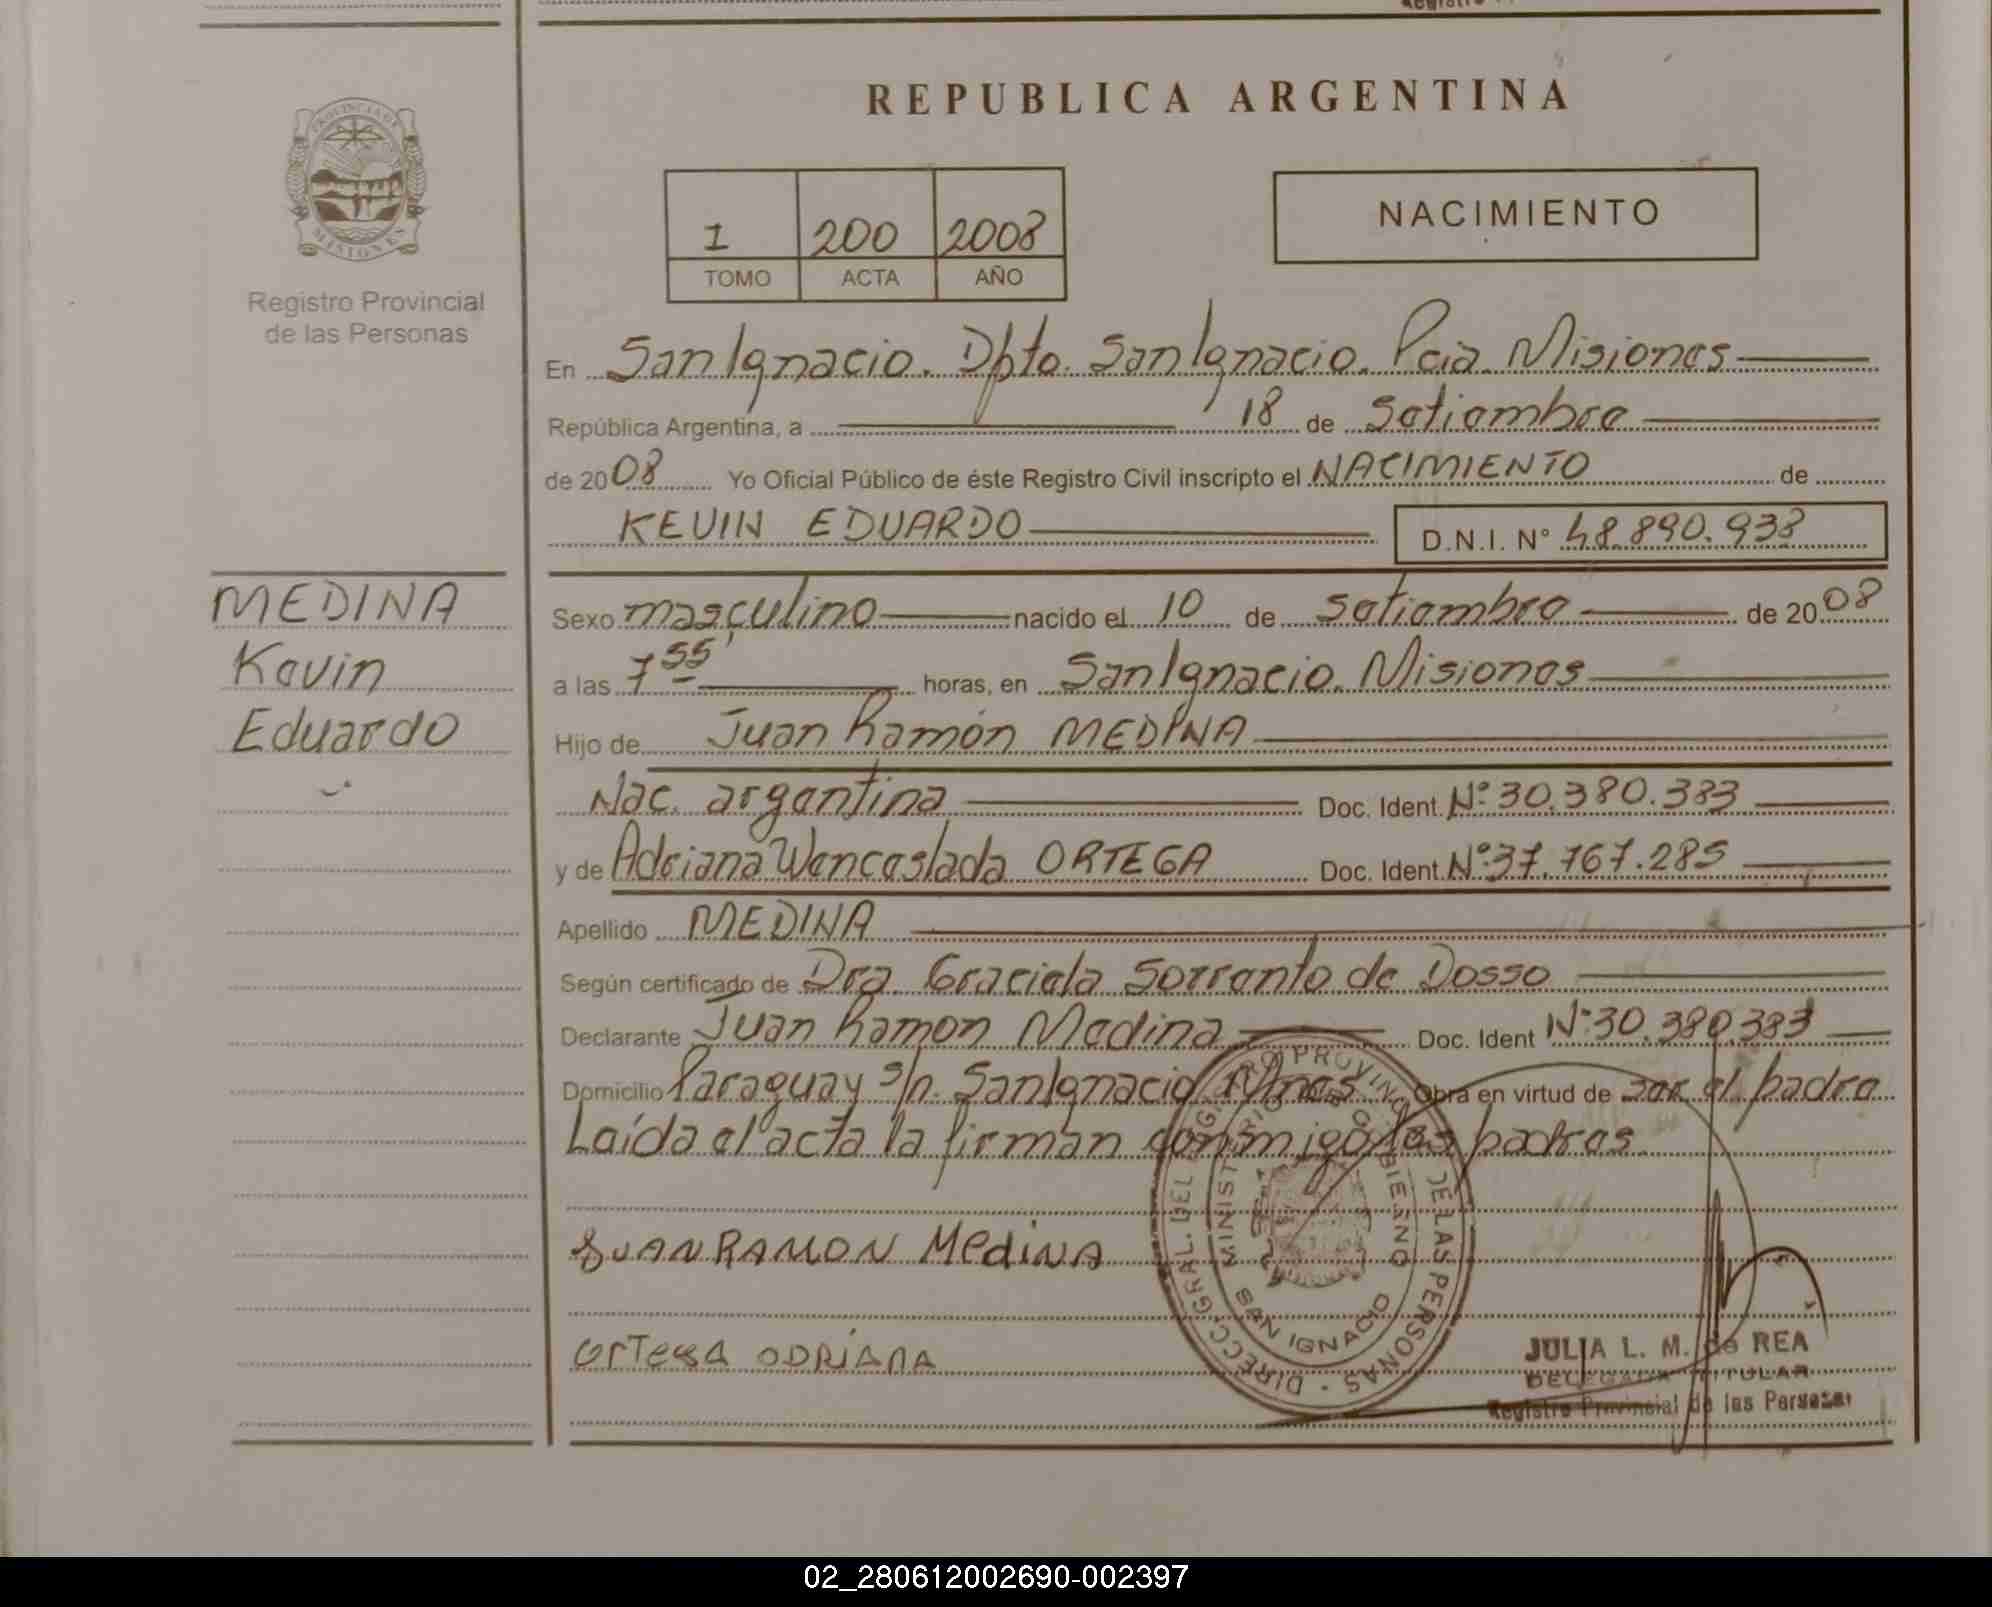 REPUBLICA ARGENTINA
PROVINCIA DE
MISIONES
Registro Provincial
de las Personas
1 200 2008
TOMO ACTA AÑO
NACIMIENTO
En San Ignacio. Dpto. San Ignacio. Pcia. Misiones
República Argentina, a 18 de Setiembre
de 2008 Yo Oficial Público de éste Registro Civil inscripto el NACIMIENTO de
KEVIN EDUARDO D.N.I. N° 48.890.938
MEDINA
Kevin
Eduardo
Sexo masculino nacido el 10 de Setiembre de 2008
a las 7 55' horas, en San Ignacio. Misiones
Hijo de Juan Ramón MEDINA
Nac. argentina Doc. Ident. N° 30.380.383
y de Adriana Wenceslada ORTEGA Doc. Ident. N° 37.767.285
Apellido MEDINA
Según certificado de Dra. Graciela Sorrento de Dosso
Declarante Juan Ramon Medina Doc. Ident N° 30.380.383
Domicilio Paraguay s/n. San Ignacio Mnes Obra en virtud de ser el padre
Leída el acta la firman conmigo los padres
JUAN RAMON MediNA
OrTEGA ADRIANA
DIRECC. GRAL. DEL REGISTRO PROVINCIAL DE LAS PERSONAS
MINISTERIO DE GOBIERNO
SAN IGNACIO
JULIA L. M. de REA
DELEGADA TITULAR
Registro Provincial de las Personas
02_280612002690-002397